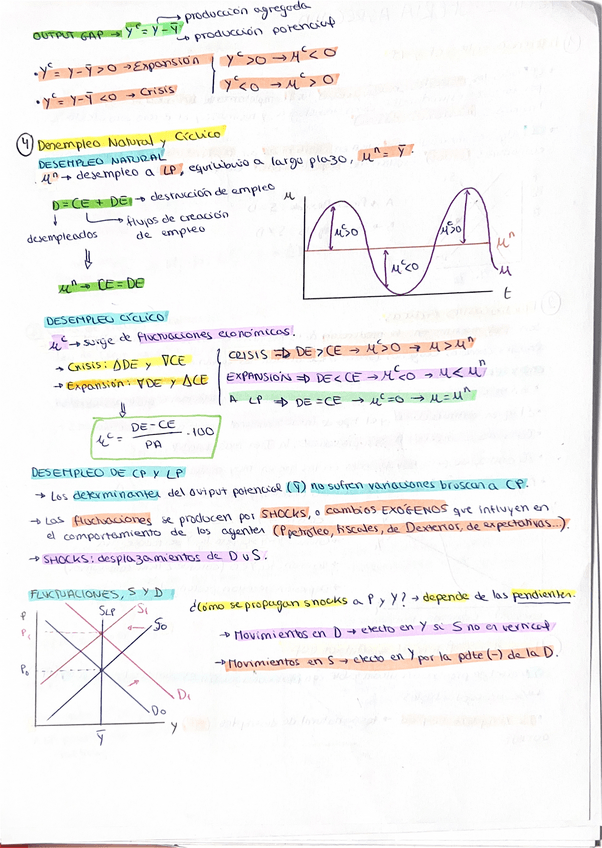 → producción agregada
OUTPUT GAP → Yᶜ = Y - Ȳ
→ producción potencial
• Yᶜ = Y - Ȳ > 0 → Expansión
Yᶜ > 0 → μᶜ < 0
• Yᶜ = Y - Ȳ < 0 → Crisis
Yᶜ < 0 → μᶜ > 0
④ Desempleo Natural y Cíclico
DESEMPLEO NATURAL
· μⁿ → desempleo a LP, equilibrio a largo plazo, μⁿ = Ȳ.
D = CE + DE → destrucción de empleo
desempleados
→ flujos de creación
de empleo
⇓
μⁿ → CE = DE
μ
μᶜ>0
μᶜ<0
μᶜ>0
μⁿ
μ
t
DESEMPLEO CÍCLICO
μᶜ → surge de fluctuaciones económicas.
→ Crisis: ΔDE y ∇CE
→ Expansión: ∇DE y ΔCE
CRISIS ⇒ DE > CE → μᶜ > 0 → μ > μⁿ
EXPANSIÓN ⇒ DE < CE → μᶜ < 0 → μ < μⁿ
A LP ⇒ DE = CE → μᶜ = 0 → μ = μⁿ
⇓
μᶜ = DE - CE / PA · 100
DESEMPLEO DE CP Y LP
→ Los determinantes del output potencial (Ȳ) no sufren variaciones bruscas a CP.
→ Las fluctuaciones se producen por SHOCKS, o cambios EXÓGENOS que influyen en
el comportamiento de los agentes (Ppetróleo, fiscales, de Dexterior, de expectativas..).
→ SHOCKS: desplazamientos de D u S.
FLUCTUACIONES, S Y D
P
P₁
P₀
SLP
S₁
S₀
D₁
D₀
Ȳ
Y
¿Cómo se propagan shocks a P y Y? → depende de las pendientes.
→ Movimientos en D → efecto en Y si S no es vertical
→ Movimientos en S → efecto en Y por la pdte (-) de la D.